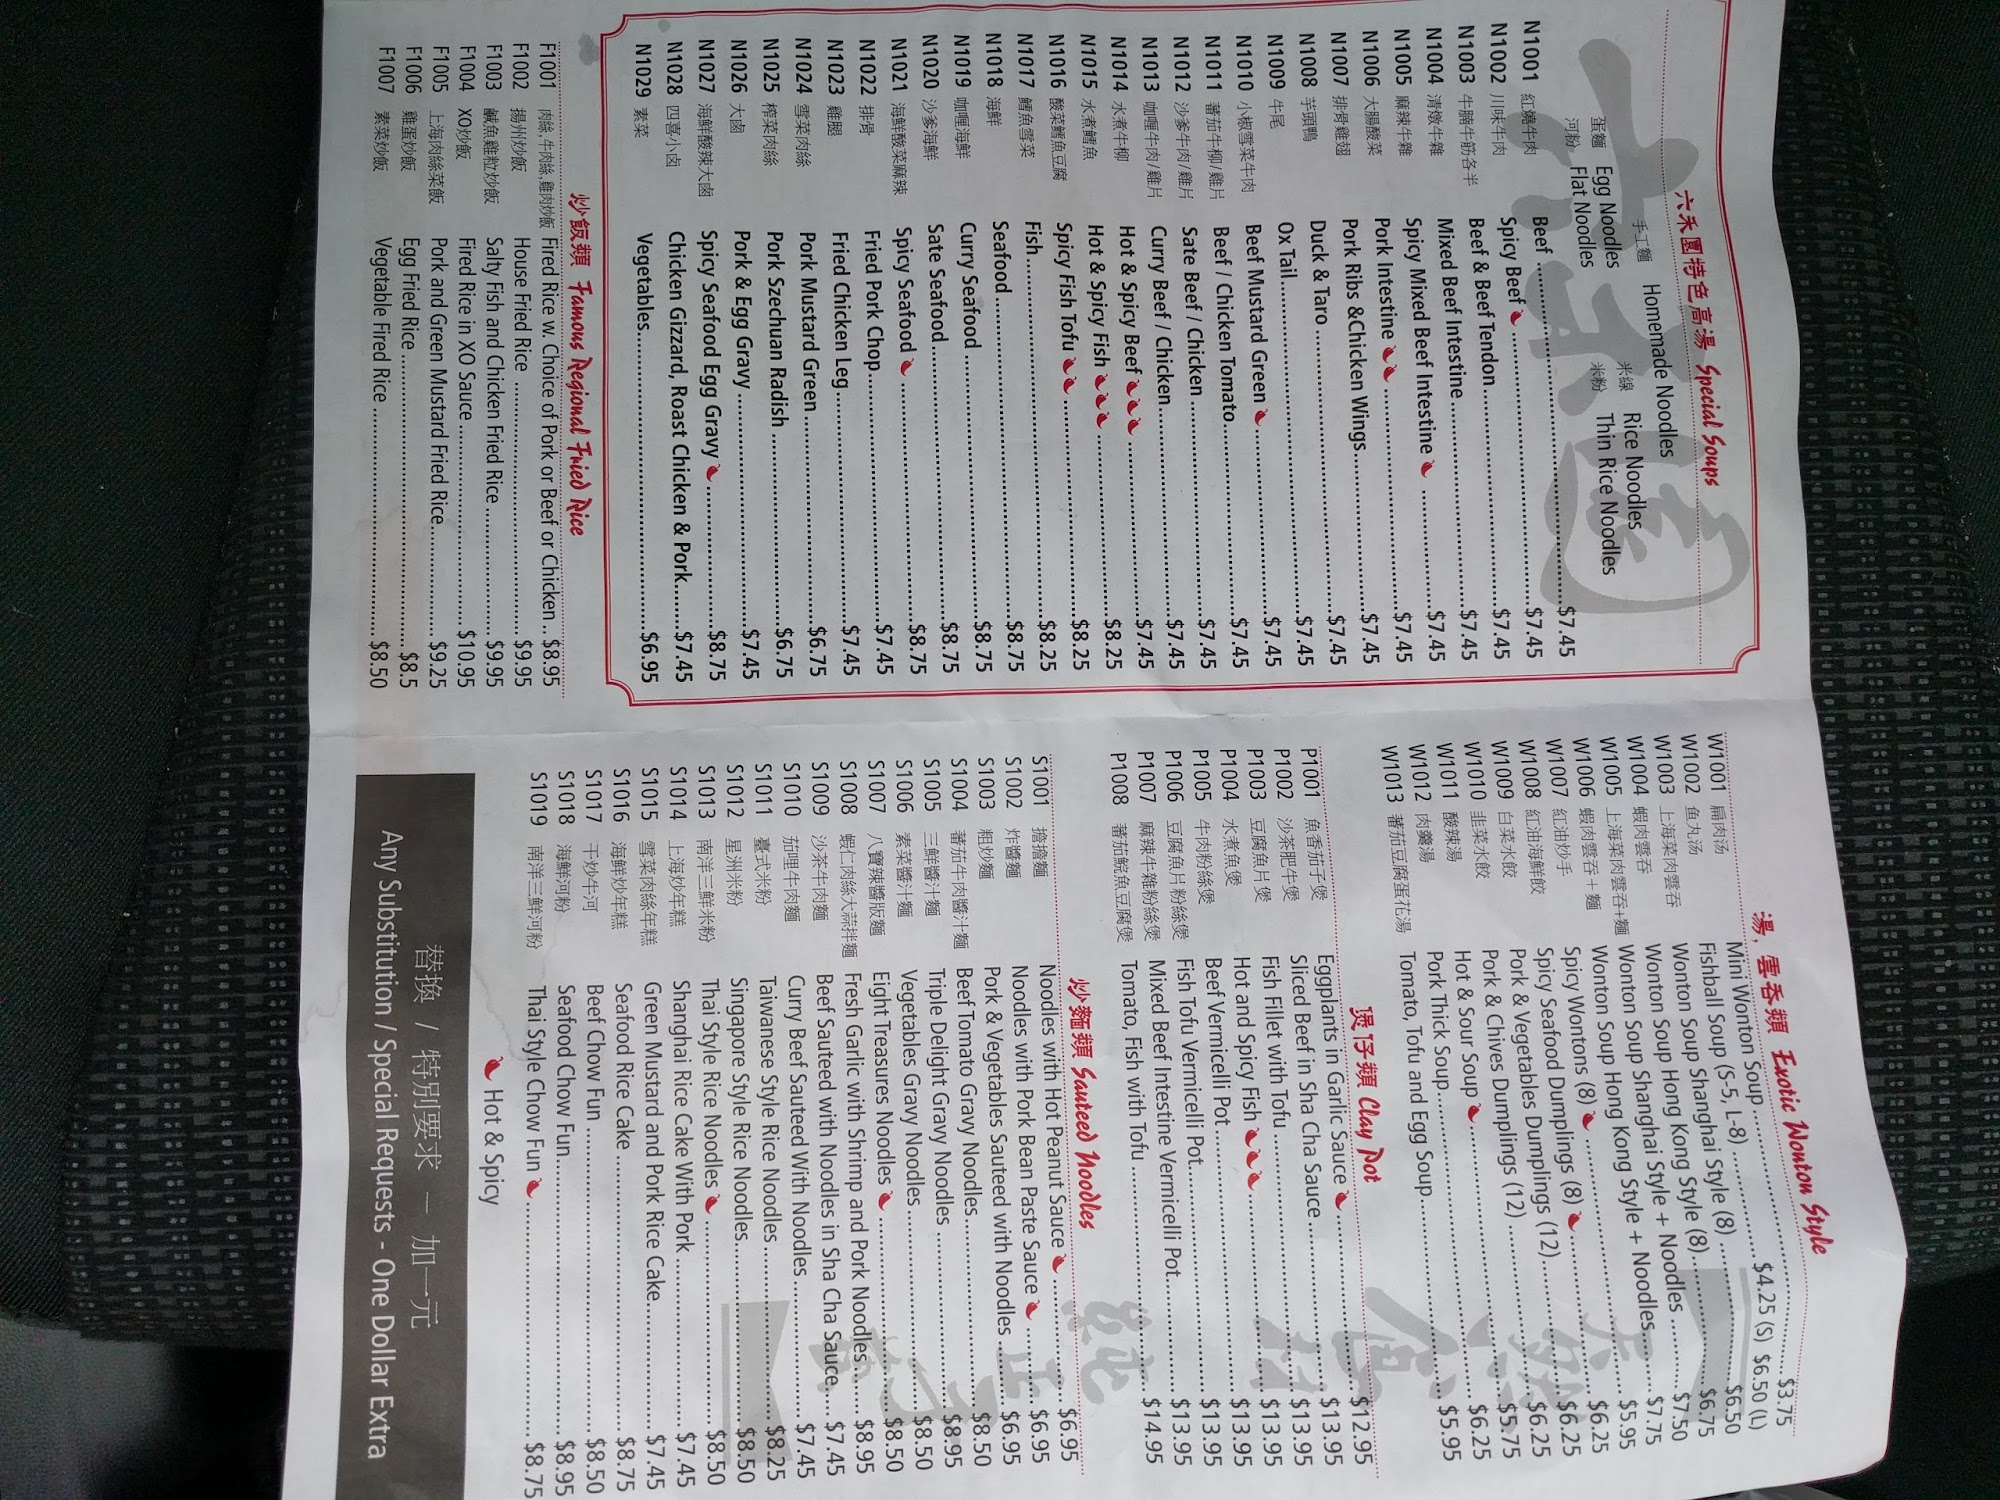 六禾園特色高湯 Special Soups
手工麵 Homemade Noodles
米線 Rice Noodles
蛋麵 Egg Noodles 米粉 Thin Rice Noodles
河粉 Flat Noodles
N1001 紅燒牛肉 Beef $7.45
N1002 川味牛肉 Spicy Beef $7.45
N1003 牛腩牛筋各半 Beef & Beef Tendon $7.45
N1004 清燉牛雜 Mixed Beef Intestine $7.45
N1005 麻辣牛雜 Spicy Mixed Beef Intestine $7.45
N1006 大腸酸菜 Pork Intestine $7.45
N1007 排骨雞翅 Pork Ribs &Chicken Wings $7.45
N1008 芋頭鴨 Duck & Taro $7.45
N1009 牛尾 Ox Tail $7.45
N1010 小椒雪菜牛肉 Beef Mustard Green $7.45
N1011 蕃茄牛柳/雞片 Beef / Chicken Tomato $7.45
N1012 沙爹牛肉/雞片 Sate Beef / Chicken $7.45
N1013 咖喱牛肉/雞片 Curry Beef / Chicken $7.45
N1014 水煮牛柳 Hot & Spicy Beef $7.45
N1015 水煮鱈魚 Hot & Spicy Fish $8.25
N1016 酸菜鱈魚豆腐 Spicy Fish Tofu $8.25
N1017 鱈魚雪菜 Fish $8.25
N1018 海鮮 Seafood $8.75
N1019 咖喱海鮮 Curry Seafood $8.75
N1020 沙爹海鮮 Sate Seafood $8.75
N1021 海鮮酸菜麻辣 Spicy Seafood $8.75
N1022 排骨 Fried Pork Chop $7.45
N1023 雞腿 Fried Chicken Leg $7.45
N1024 雪菜肉絲 Pork Mustard Green $6.75
N1025 榨菜肉絲 Pork Szechuan Radish $6.75
N1026 大鹵 Pork & Egg Gravy $7.45
N1027 海鮮酸辣大鹵 Spicy Seafood Egg Gravy $8.75
N1028 四喜小鹵 Chicken Gizzard, Roast Chicken & Pork $7.45
N1029 素菜 Vegetables $6.95
炒飯類 Famous Regional Fried Rice
F1001 肉絲,牛肉絲,雞肉炒飯 Fired Rice w. Choice of Pork or Beef or Chicken $8.95
F1002 揚州炒飯 House Fried Rice $9.95
F1003 鹹魚雞粒炒飯 Salty Fish and Chicken Fried Rice $9.95
F1004 XO炒飯 Fired Rice in XO Sauce $10.95
F1005 上海肉絲菜飯 Pork and Green Mustard Fried Rice $9.25
F1006 雞蛋炒飯 Egg Fried Rice $8.5
F1007 素菜炒飯 Vegetable Fried Rice $8.50
湯,雲吞類 Exotic Wonton Style
W1001 扁肉汤 Mini Wonton Soup $3.75
W1002 鱼丸汤 Fishball Soup (S-5, L-8) $4.25 (S) $6.50 (L)
W1003 上海菜肉雲吞 Wonton Soup Shanghai Style (8) $6.50
W1004 蝦肉雲吞 Wonton Soup Hong Kong Style (8) $6.75
W1005 上海菜肉雲吞+麵 Wonton Soup Shanghai Style + Noodles $7.50
W1006 蝦肉雲吞+麵 Wonton Soup Hong Kong Style + Noodles $7.75
W1007 紅油炒手 Spicy Wontons (8) $5.95
W1008 紅油海鮮餃 Spicy Seafood Dumplings (8) $6.25
W1009 白菜水餃 Pork & Vegetables Dumplings (12) $6.25
W1010 韭菜水餃 Pork & Chives Dumplings (12) $6.25
W1011 酸辣湯 Hot & Sour Soup $5.75
W1012 肉羹湯 Pork Thick Soup $6.25
W1013 蕃茄豆腐蛋花湯 Tomato, Tofu and Egg Soup $5.95
煲仔類 Clay Pot
P1001 魚香茄子煲 Eggplants in Garlic Sauce $12.95
P1002 沙茶肥牛煲 Sliced Beef in Sha Cha Sauce $13.95
P1003 豆腐魚片煲 Fish Fillet with Tofu $13.95
P1004 水煮魚煲 Hot and Spicy Fish $13.95
P1005 牛肉粉絲煲 Beef Vermicelli Pot $13.95
P1006 豆腐魚片粉絲煲 Fish Tofu Vermicelli Pot $13.95
P1007 麻辣牛雜粉絲煲 Mixed Beef Intestine Vermicelli Pot $13.95
P1008 蕃茄鯇魚豆腐煲 Tomato, Fish with Tofu $14.95
炒麵類 Sauteed Noodles
S1001 擔擔麵 Noodles with Hot Peanut Sauce $6.95
S1002 炸醬麵 Noodles with Pork Bean Paste Sauce $6.95
S1003 粗炒麵 Pork & Vegetables Sauteed with Noodles $6.95
S1004 蕃茄牛肉醬汁麵 Beef Tomato Gravy Noodles $8.50
S1005 三鮮醬汁麵 Triple Delight Gravy Noodles $8.95
S1006 素菜醬汁麵 Vegetables Gravy Noodles $8.50
S1007 八寶辣醬版麵 Eight Treasures Noodles $8.50
S1008 蝦仁肉絲大蒜拌麵 Fresh Garlic with Shrimp and Pork Noodles $8.95
S1009 沙茶牛肉麵 Beef Sauteed with Noodles in Sha Cha Sauce $7.45
S1010 茄哩牛肉麵 Curry Beef Sauteed With Noodles $7.45
S1011 臺式米粉 Taiwanese Style Rice Noodles $8.25
S1012 星洲米粉 Singapore Style Rice Noodles $8.50
S1013 南洋三鮮米粉 Thai Style Rice Noodles $8.50
S1014 上海炒年糕 Shanghai Rice Cake With Pork $7.45
S1015 雪菜肉絲年糕 Green Mustard and Pork Rice Cake $7.45
S1016 海鮮炒年糕 Seafood Rice Cake $8.75
S1017 干炒牛河 Beef Chow Fun $8.50
S1018 海鮮河粉 Seafood Chow Fun $8.95
S1019 南洋三鮮河粉 Thai Style Chow Fun $8.75
Hot & Spicy
替換 / 特別要求 — 加一元
Any Substitution / Special Requests - One Dollar Extra